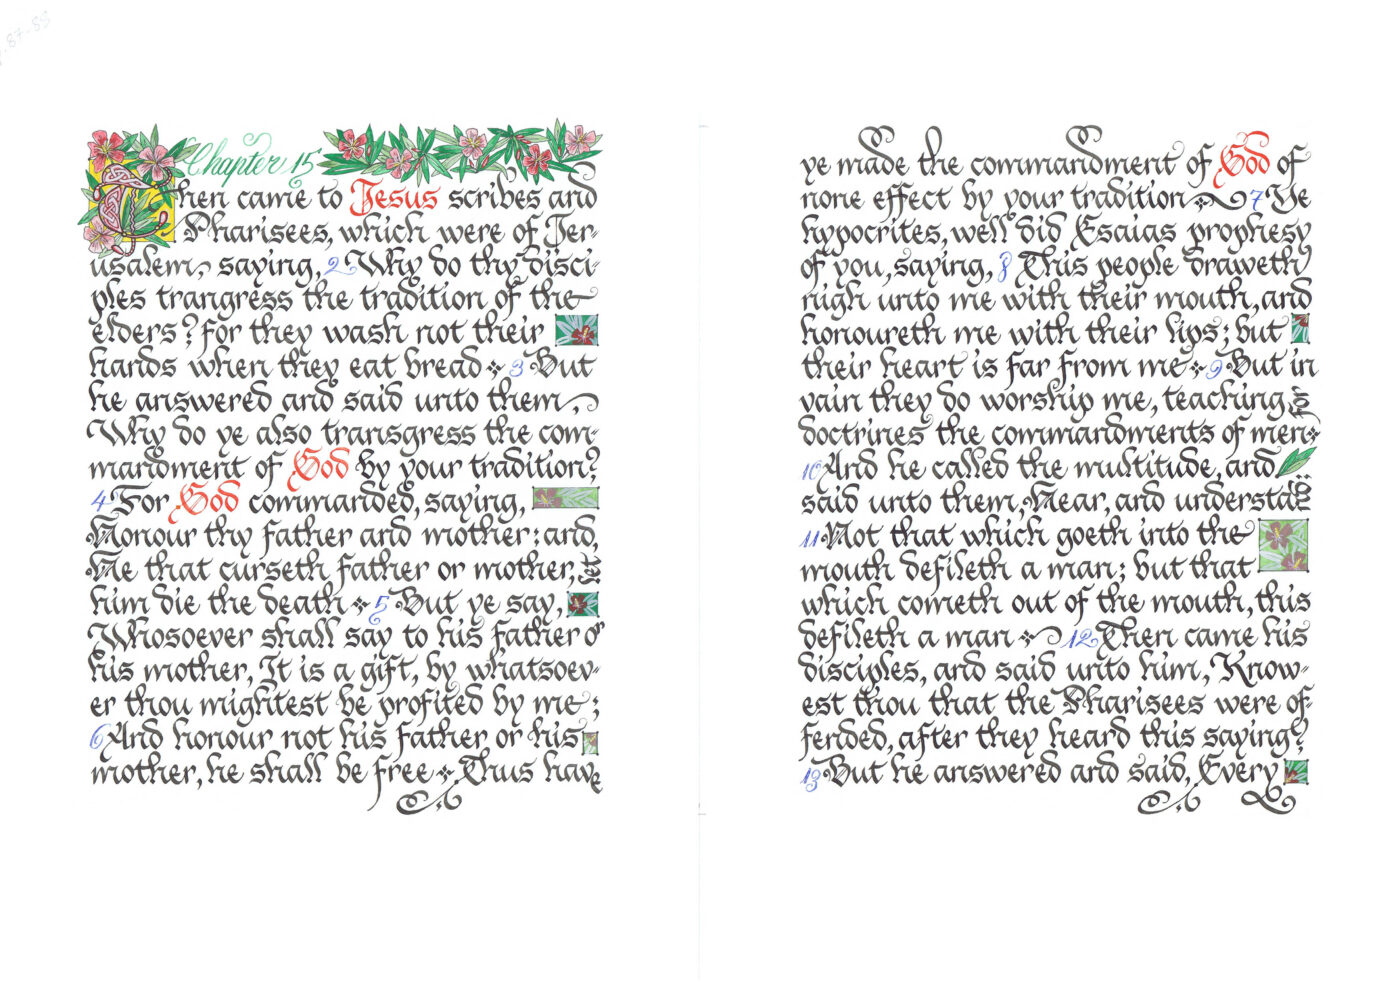 87-88
Chapter 15
Then came to Jesus scribes and
Pharisees, which were of Jer-
usalem, saying, 2 Why do thy disci-
ples trangress the tradition of the
elders? for they wash not their
hands when they eat bread 3 But
he answered and said unto them,
Why do ye also transgress the com-
mandment of God by your tradition?
4 For God commanded, saying,
Honour thy father and mother: and,
He that curseth father or mother, let
him die the death 5 But ye say,
Whosoever shall say to his father or
his mother, It is a gift, by whatsoev-
er thou mightest be profited by me;
6 And honour not his father or his
mother, he shall be free Thus have
ye made the commandment of God of
none effect by your tradition 7 Ye
hypocrites, well did Esaias prophesy
of you, saying, 8 This people draweth
nigh unto me with their mouth, and
honoureth me with their lips; but
their heart is far from me 9 But in
vain they do worship me, teaching for
doctrines the commandments of men
10 And he called the multitude, and
said unto them, Hear, and understand
11 Not that which goeth into the
mouth defileth a man; but that
which cometh out of the mouth, this
defileth a man 12 Then came his
disciples, and said unto him, Know-
est thou that the Pharisees were of-
fended, after they heard this saying?
13 But he answered and said, Every